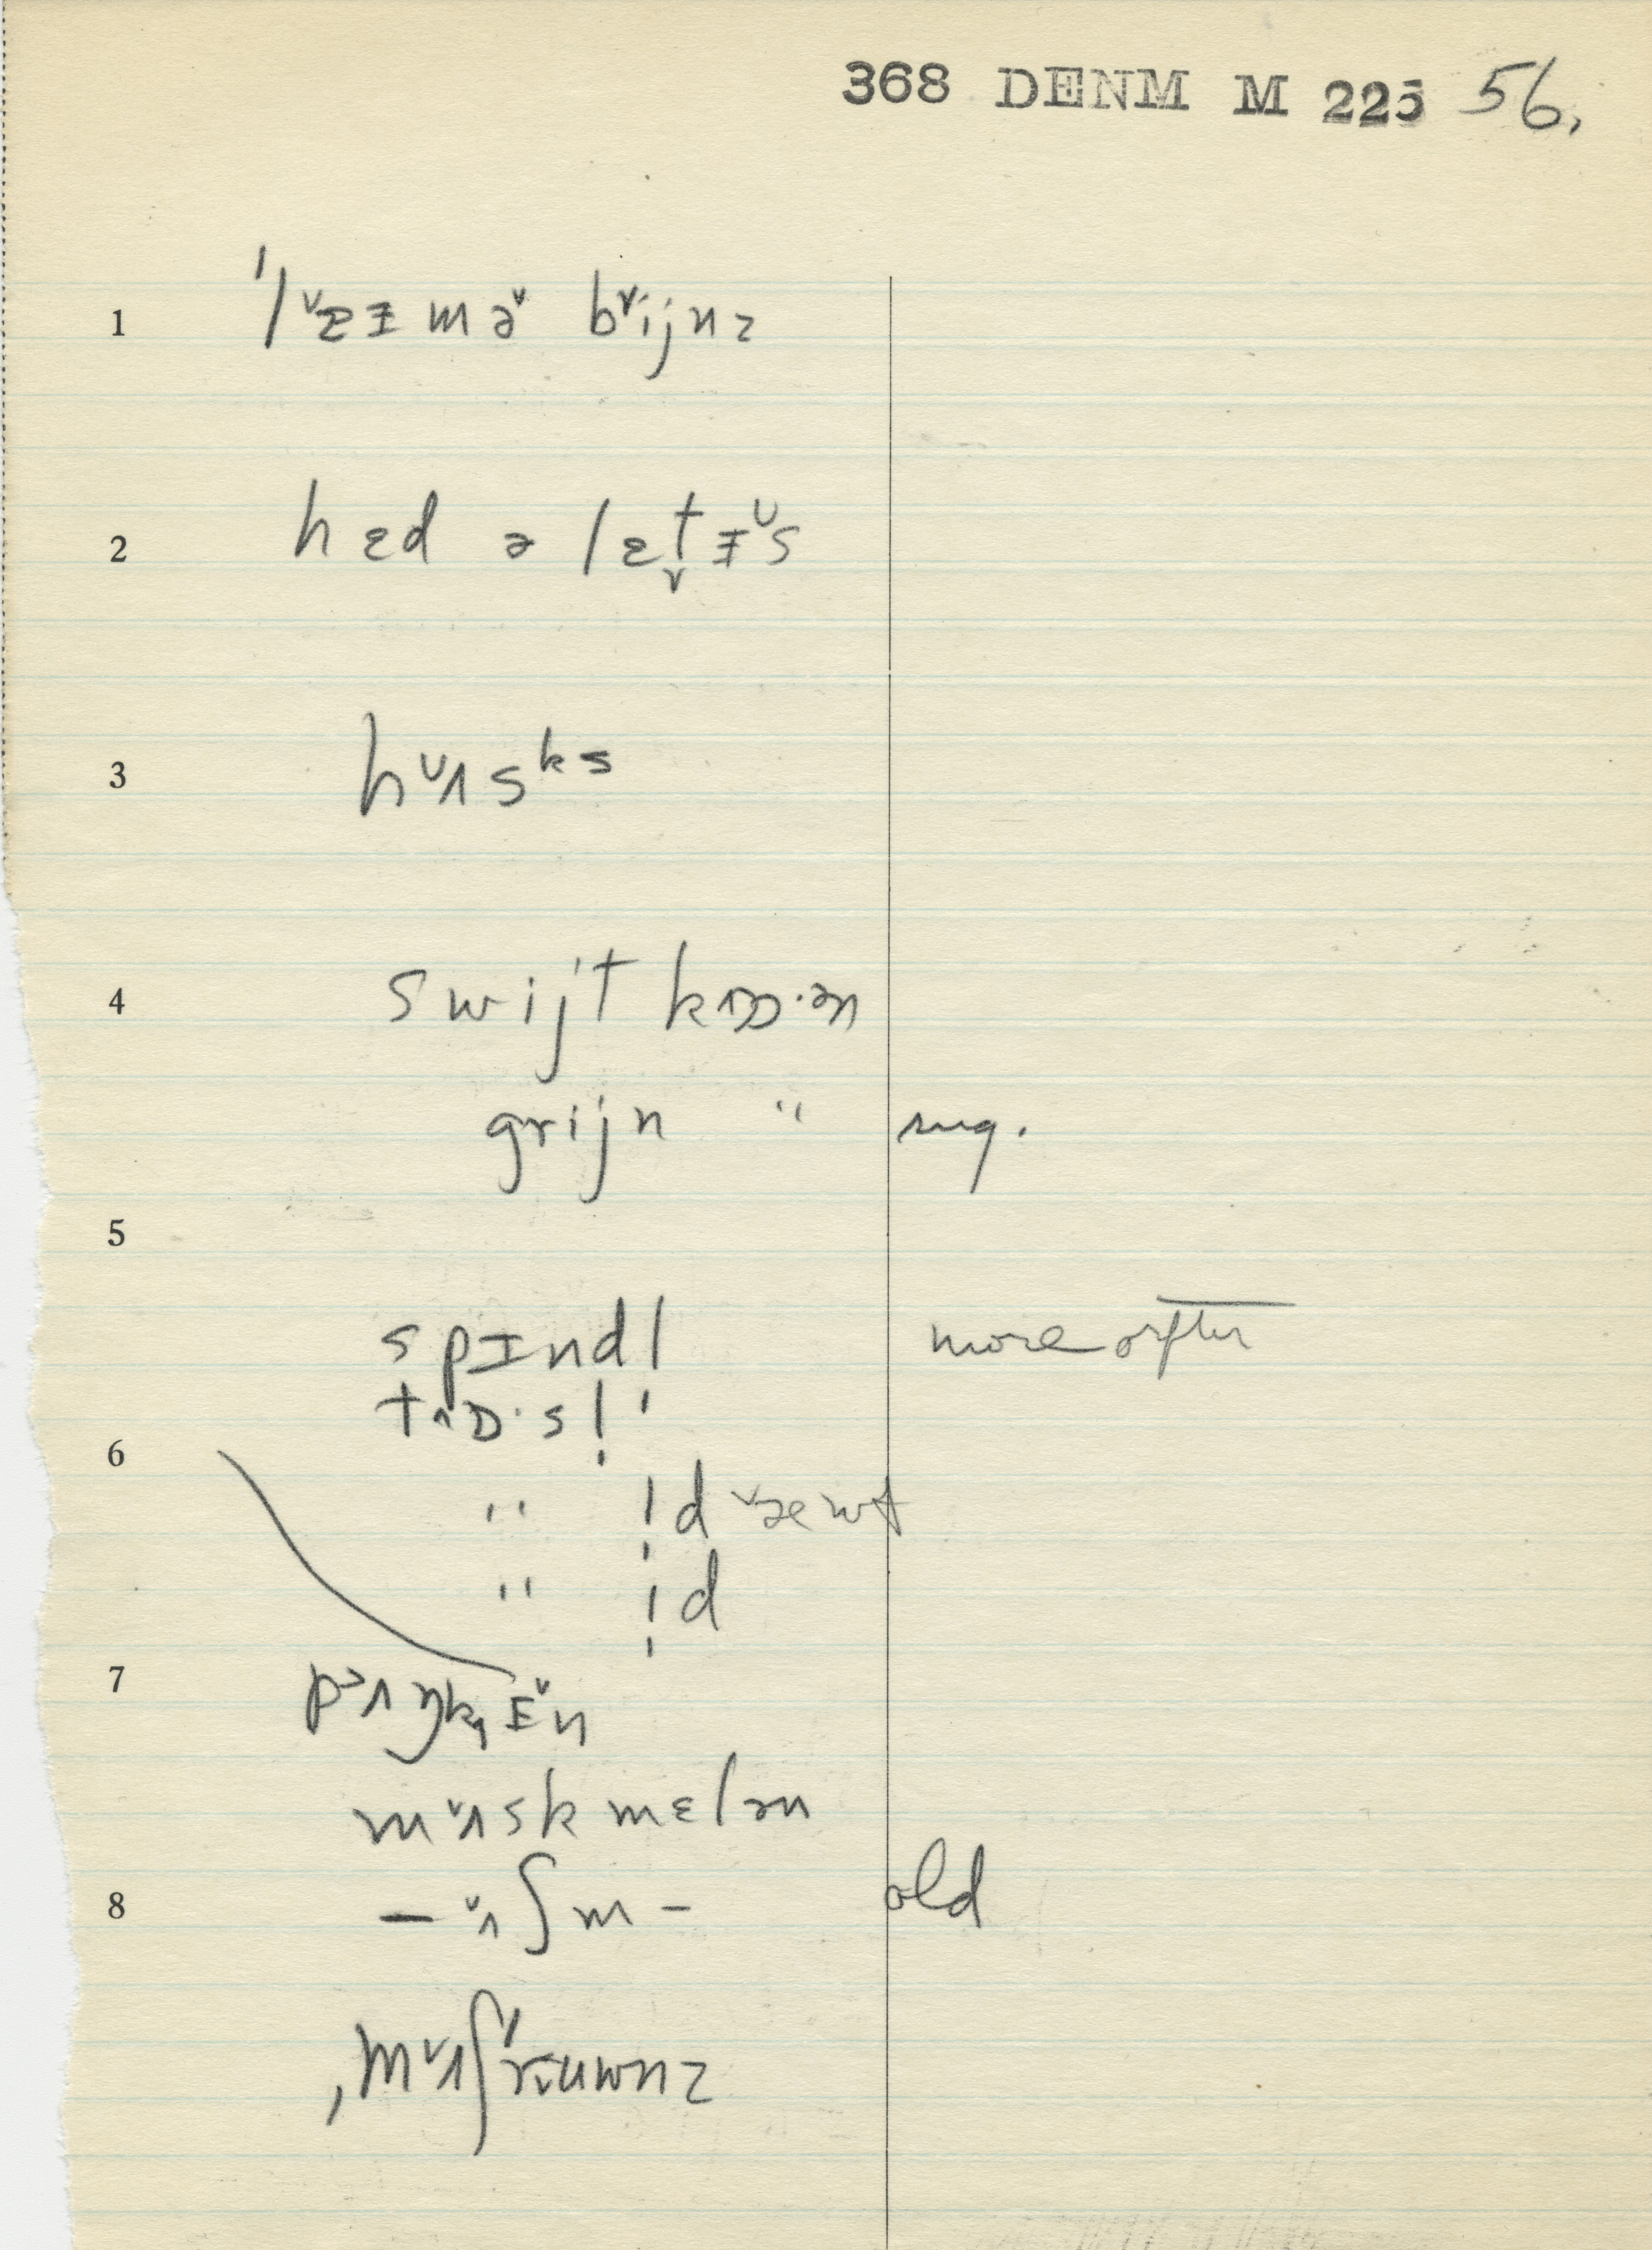 368 DENM M 225 56.
1 ˈlᵛæɪmə˅ bᵛijnz
2 hɛd ə lɛt̬ɪ˅s
3 h˅ʌsᵏs
4 swijt kɒɒ·ən
grijn " sug.
5
spɪndl more often
tʌɒ·sl̩ '
6 " l̩d ˅æwt
" l̩d
7 p˃ʌŋkɪ˅n
m˅ʌsk mɛlən
8 – ˅ʌʃm – old
ˌm˅ʌʃˈruwnz